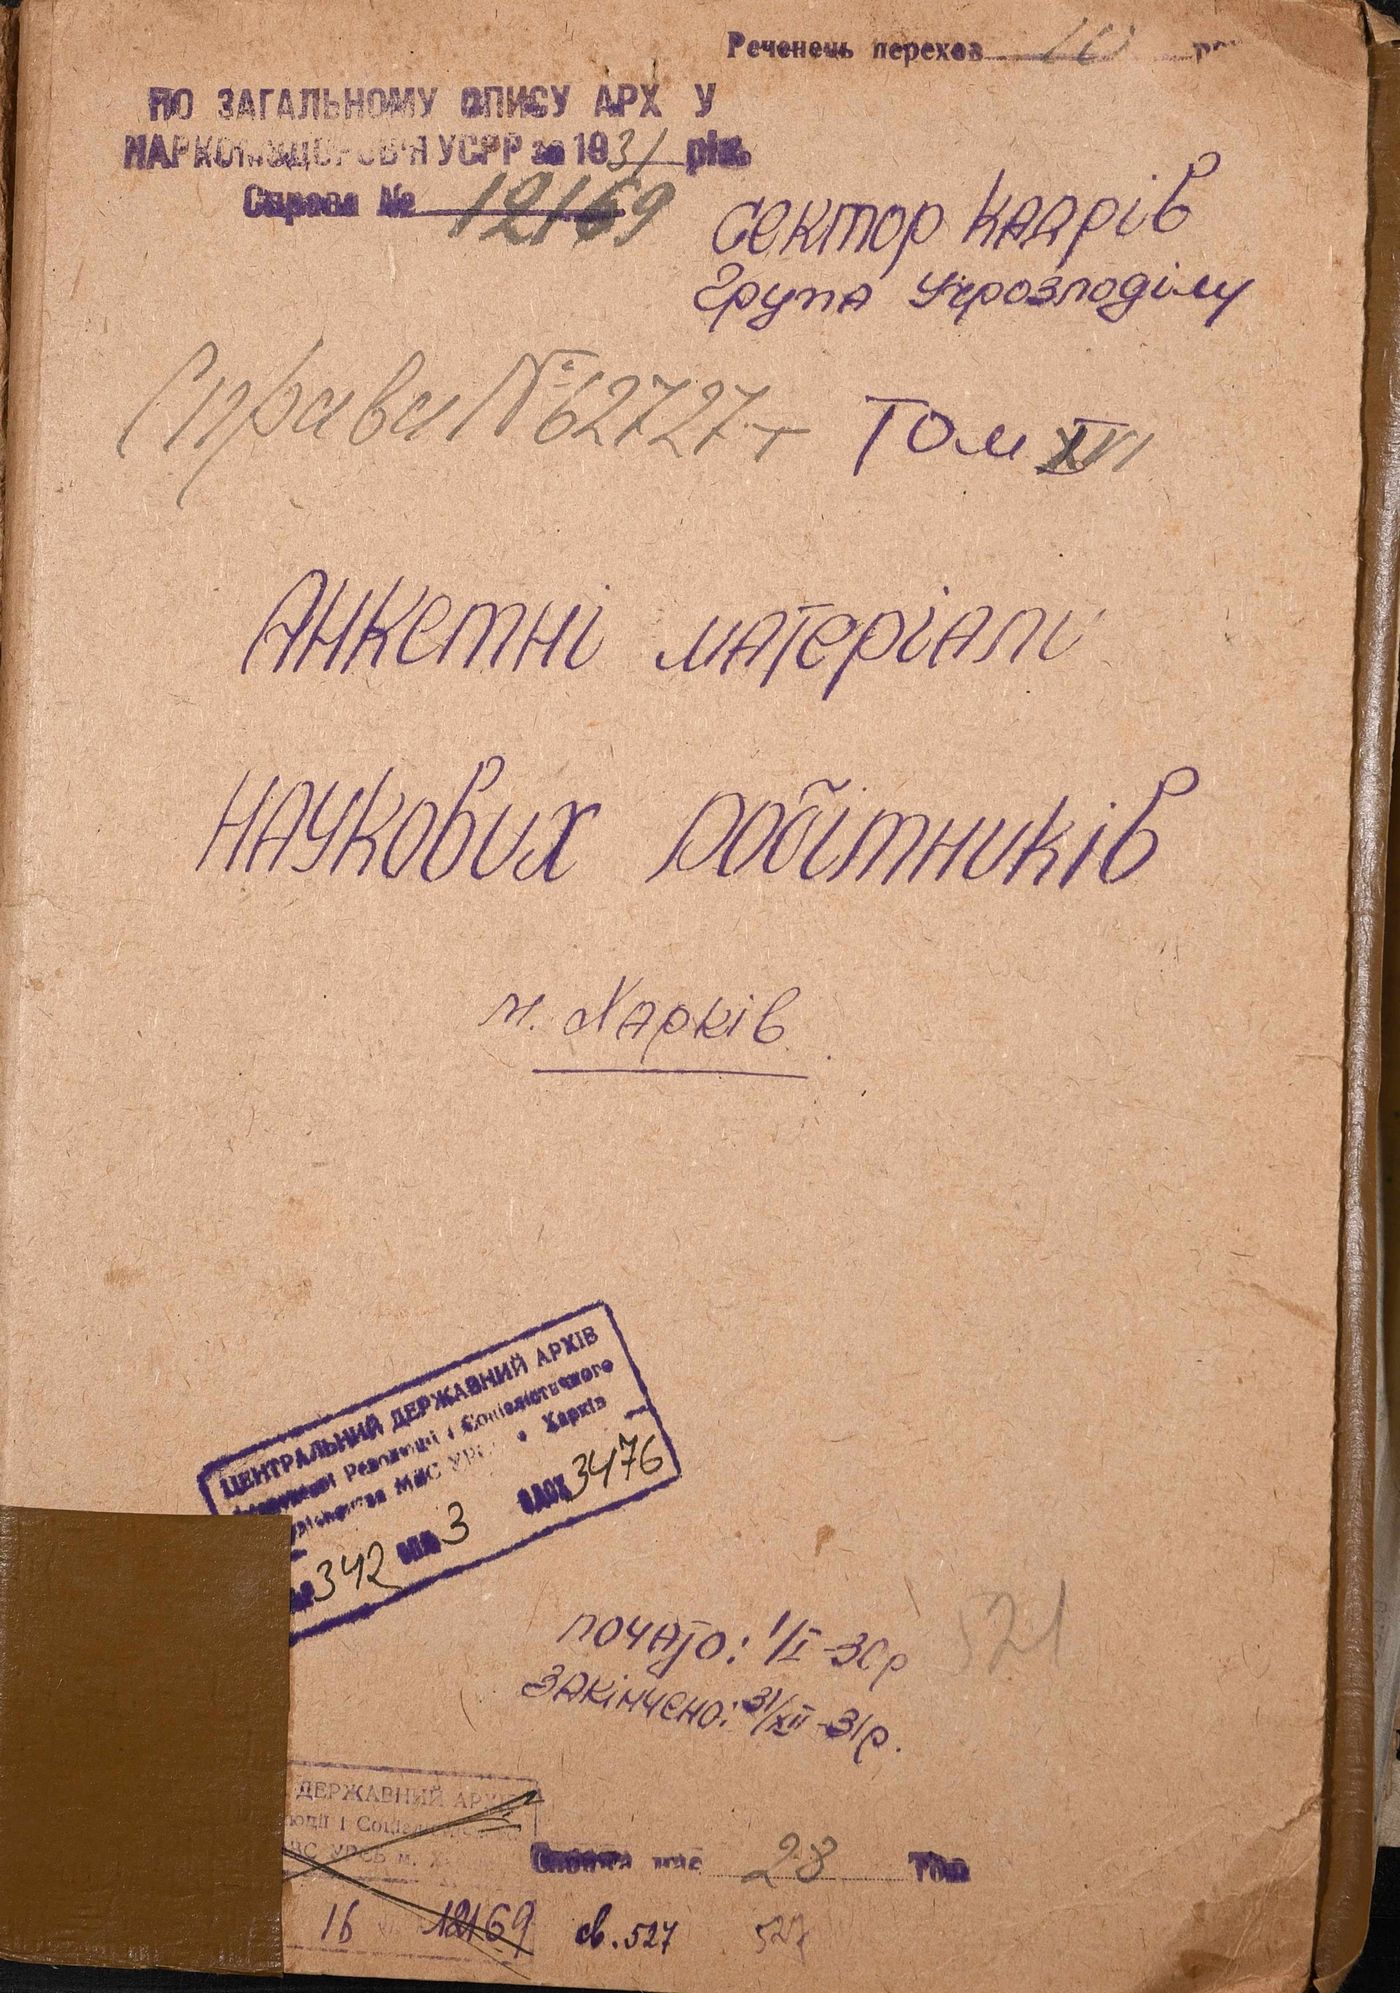 Реченець перехов 10
ПО ЗАГАЛЬНОМУ ОПИСУ АРХ У
НАРКОМЗДОРОВ'Я УСРР за 1931 рік
Справа № 12169
Сектор Кадрів
Група Учрозподілу
Справа № 62727-т Том XVI
Анкетні матеріали
Наукових робітників
м. Харків.
ЦЕНТРАЛЬНИЙ ДЕРЖАВНИЙ АРХІВ
Революції і Соціалістичного
МВС УРСР м. Харків
342 ОПИС 3 ОДОХ 3476
почато: 1/I-30р
закінчено: 31/XII-31р.
521
ДЕРЖАВНИЙ АРХІВ
юції і Соціалістичного
МВС УРСР м. Х
Справа має 28 Том
16 12169 св. 527 527